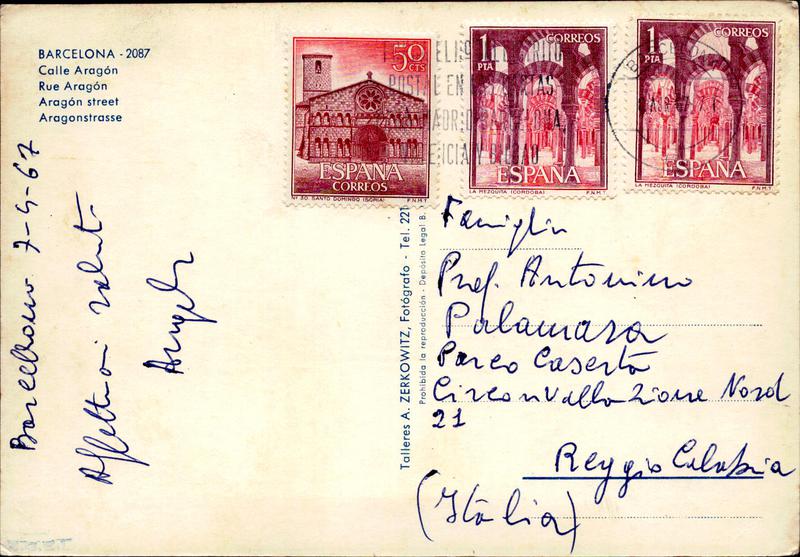 BARCELONA - 2087
Calle Aragón
Rue Aragón
Aragón street
Aragonstrasse
50
CTS
ESPAÑA
CORREOS
Nº 30. SANTO DOMINGO (SORIA) F.N.M.T.
1
PTA
CORREOS
ESPAÑA
LA MEZQUITA (CORDOBA) F.N.M.T.
1
PTA
CORREOS
ESPAÑA
LA MEZQUITA (CORDOBA) F.N.M.T.
POSTAL EN
Barcellona 7-5-67
Affettuosi saluti
Angela
Talleres A. ZERKOWITZ, Fotógrafo - Tel. 221
Prohibida la reproducción - Depósito Legal B.
Famiglia
Prof. Antonino
Palamara
Parco Caserta
Circonvallazione Nord
21
Reggio Calabria
(Italia)